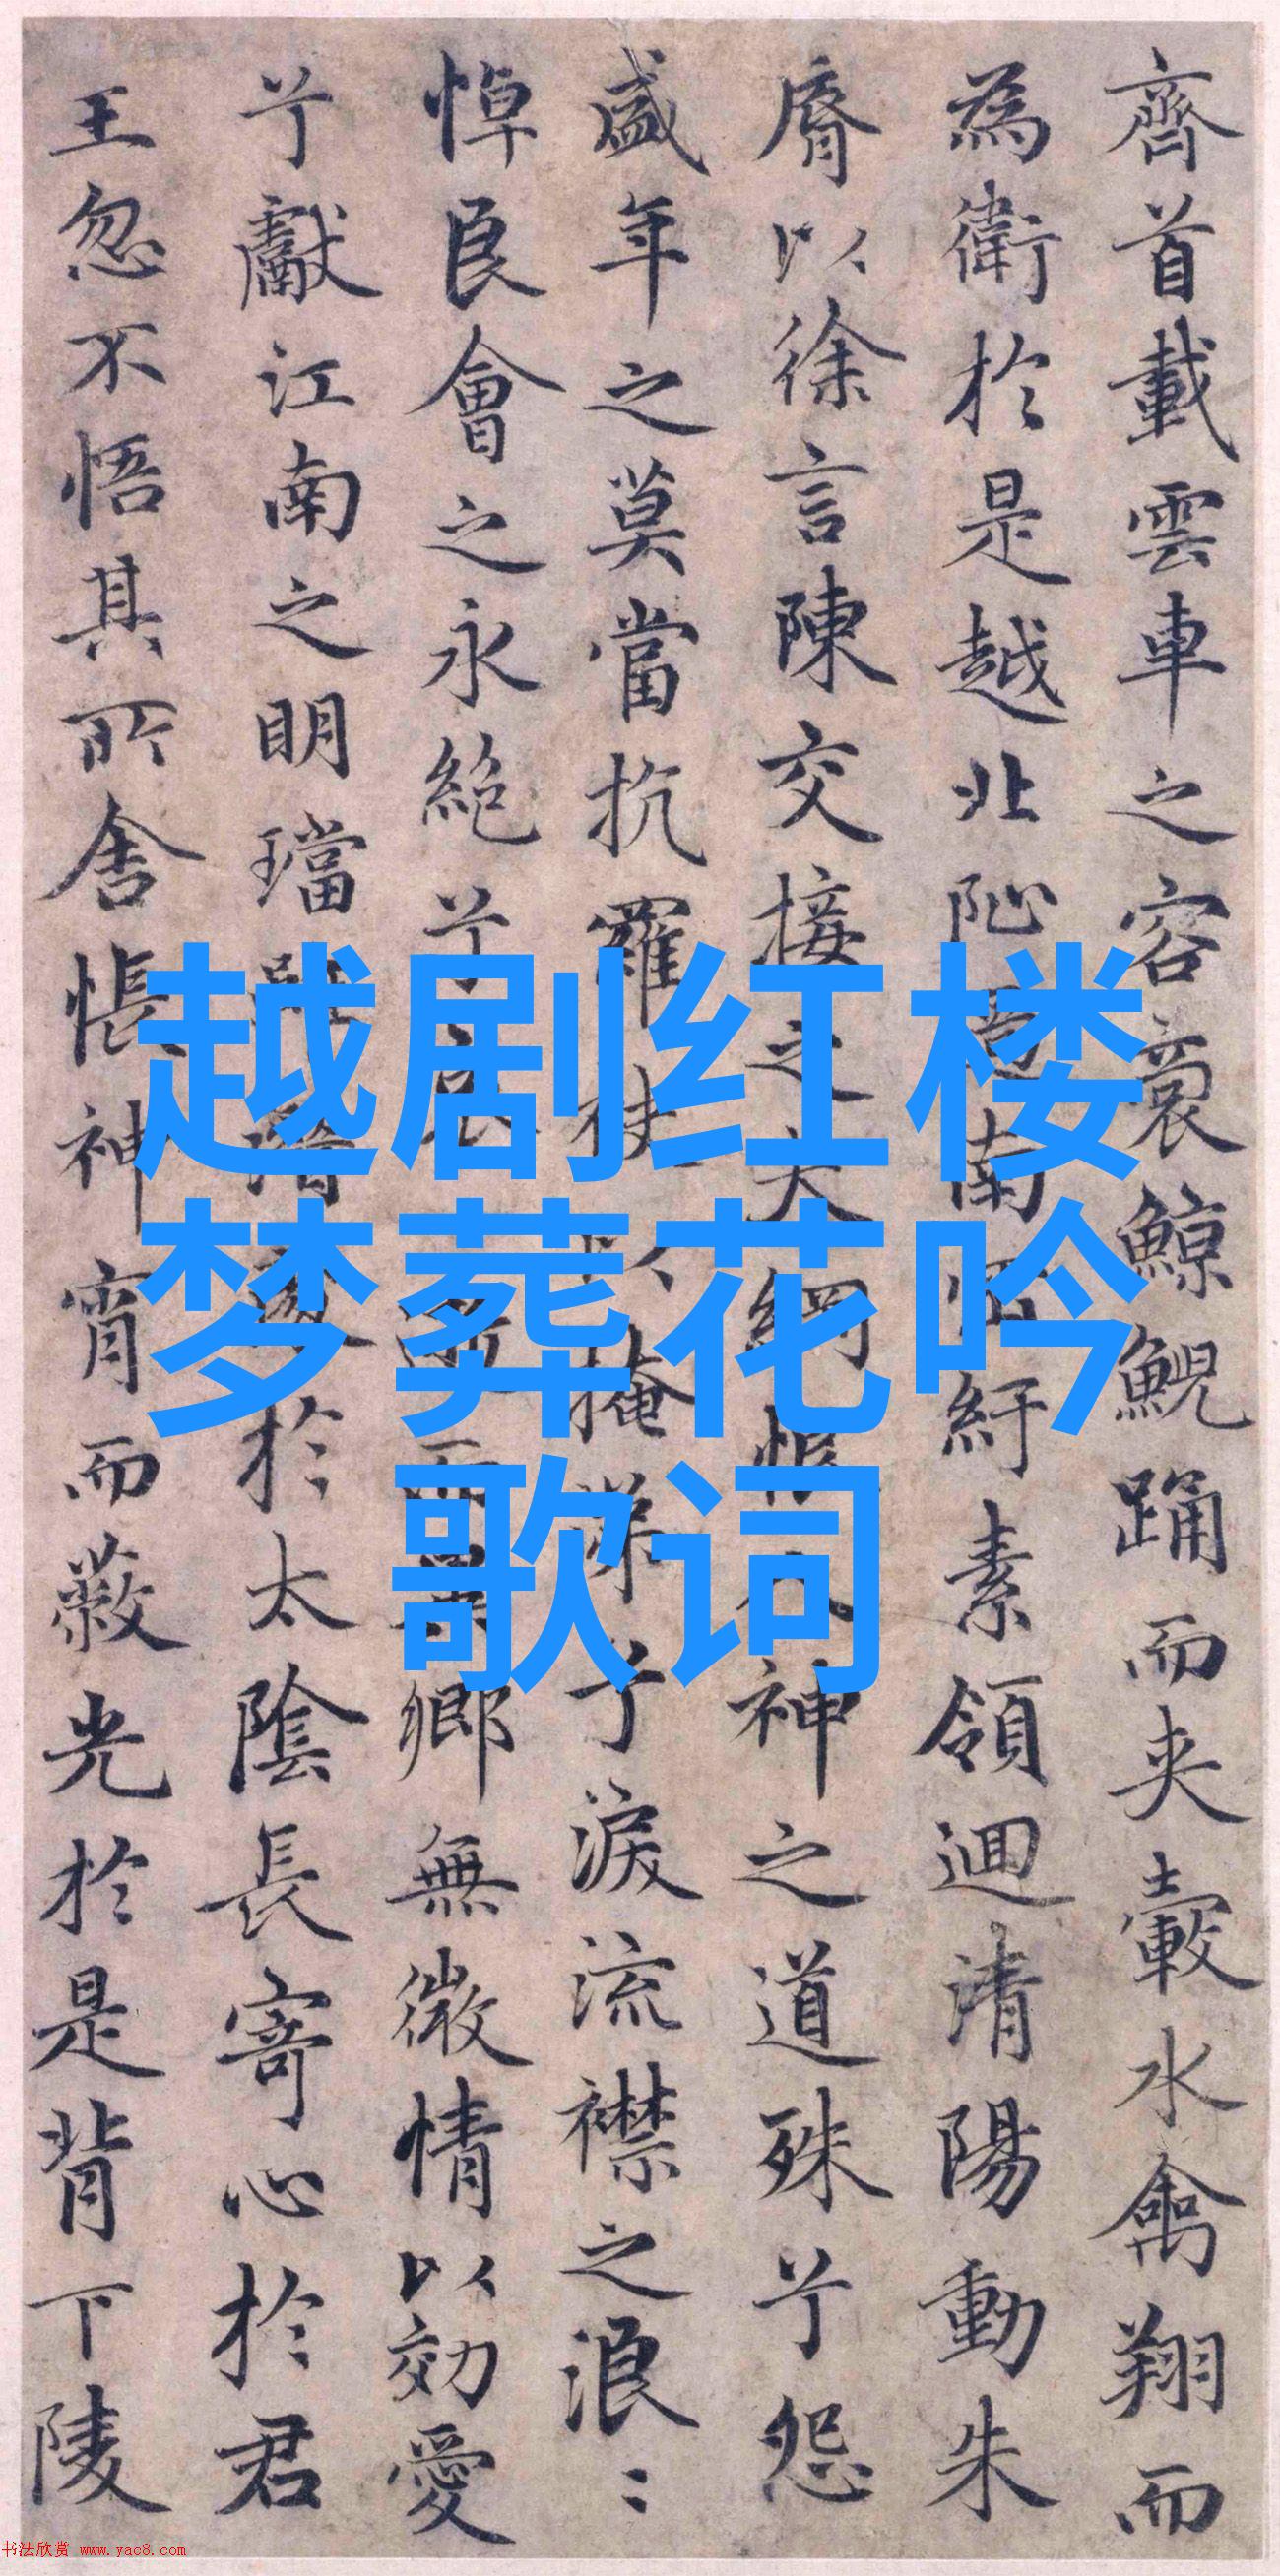 齊首載雲車之容裔鯨鯢踊而夾轂水禽翔而
為衛於是越北沚過南岡紆素領迴清陽動朱
脣以徐言陳交接之大綱恨人神之道殊兮怨
盛年之莫當抗羅袂以掩涕兮淚流襟之浪〻
悼良會之永絕兮哀逝而異鄉無微情以効愛
兮獻江南之明璫雖潛處於太陰長寄心於君
王忽不悟其所舍悵神宵而蔽光於是背下陵
越剧红楼
梦葬花吟
歌词
书法欣赏 www.yac8.com